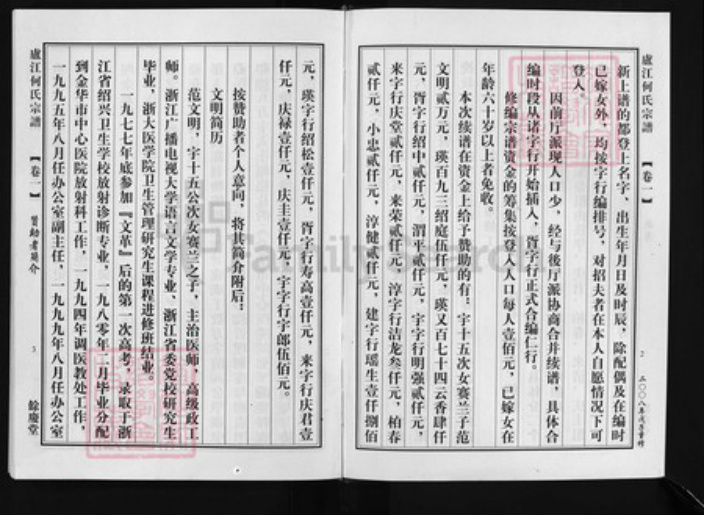 盧江何氏宗譜
【卷一】
2
二〇〇八年戊子重修
新上谱的都登上名字、出生年月日及时辰，除配偶及在编时
已嫁女外，均按字行编排号，对招夫者在本人自愿情况下可
登入。
因前厅派现人口少，经与後厅派协商合并续谱，具体合
编时段从诸字行开始插入，胥字行正式合编仁行。
修编宗谱资金的筹集按登入人口每人壹佰元，已嫁女在
年龄六十岁以上者免收。
本次续谱在资金上给予赞助的有：宇十五次女赛兰子范
文明贰万元，瑛百九三绍庭伍仟元，瑛又百七十四云香肆仟
元，胥字行绍中贰仟元，渭平贰仟元，宇字行明强贰仟元，
来字行庆堂贰仟元，来荣贰仟元，淳字行洁龙叁仟元，柏春
贰仟元，小忠贰仟元，淳健贰仟元，建字行瑶生壹仟捌佰
元，瑛字行绍松壹仟元，胥字行寿高壹仟元，来字行庆君壹
仟元，庆禄壹仟元，庆圭壹仟元，宇字行宇郎伍佰元。
按赞助者个人意向，将其简介附后：
文明简历
范文明，宇十五公次女赛兰之子，主治医师，高级政工
师。浙江广播电视大学语言文学专业、浙江省委党校研究生
毕业，浙大医学院卫生管理研究生课程进修班结业。
一九七七年底参加『文革』后的第一次高考，录取于浙
江省绍兴卫生学校放射诊断专业，一九八〇年二月毕业分配
到金华市中心医院放射科工作，一九九四年调医教处工作，
一九九五年八月任办公室副主任，一九九九年八月任办公室
盧江何氏宗譜
【卷一】
赞助者简介
3
餘慶堂
FamilySearch